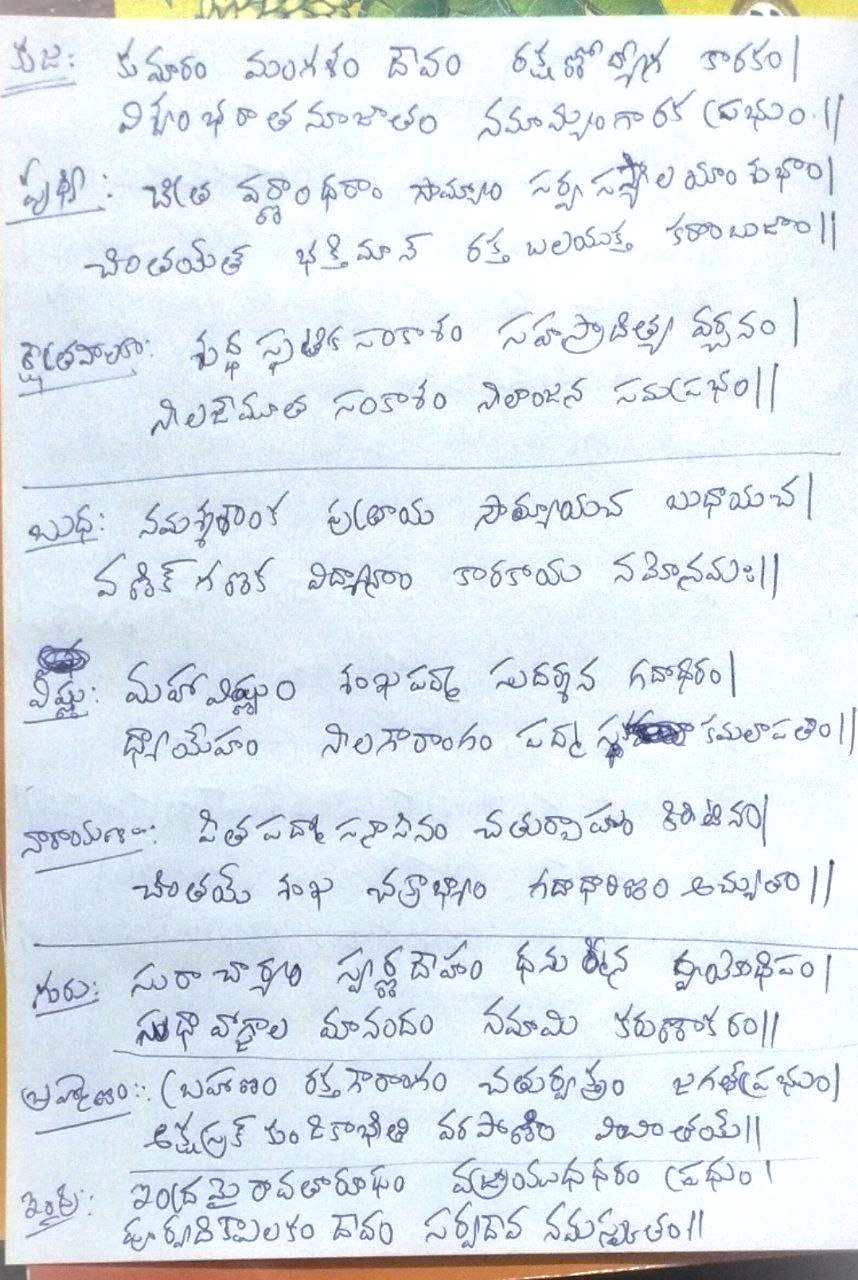 కుజ: కుమారం మంగళం దేవం రక్షణోద్యోగ కారకం|
విశ్వంభరాతనూజాతం నమామ్యంగారక ప్రభుం||
పృథ్వి: చిత్ర వర్ణాంధరాం సౌమ్యాం సర్వ సస్యాలయాం శుభాం|
చింతయేత్ భక్తిమాన్ రక్త బలయుక్త కరాంబుజాం||
క్షేత్రపాలా: శుద్ధ స్ఫటిక సంకాశం సహస్రాదిత్య వర్చసం|
నీలజీమూత సంకాశం నీలాంజన సమప్రభం||
బుధ: నమశ్శశాంక పుత్రాయ సౌమ్యాయచ బుధాయచ|
వణిక్ గణక విద్యానాం కారకాయ నమోనమః||
విష్ణు: మహావిష్ణుం శంఖపద్మ సుదర్శన గదాధరం|
ధ్యాయేహం నీలగౌరాంగం పద్మ కమలాపతిం||
నారాయణ: పీత పద్మాసనాసీనం చతుర్బాహుం కిరీటినం|
చింతయే శంఖ చక్రాభ్యాం గదాధారిణం అచ్యుతం||
గురు: సురాచార్యం స్వర్ణదేహం ధనుర్మీన ద్వయాధిపం|
సుధా వాగ్జాల మానందం నమామి కరుణాకరం||
బ్రహ్మాణం: బ్రహ్మాణం రక్తగౌరాంగం చతుర్వక్త్రం జగత్ప్రభుం|
అక్షస్రక్ కుండికాభీతి వరపాణిం విచింతయే||
ఇంద్ర: ఇంద్రమైరావతారూఢం వజ్రాయుధధరం ప్రభుం|
పూర్వదిక్పాలకం దేవం సర్వదేవ నమస్కృతం||